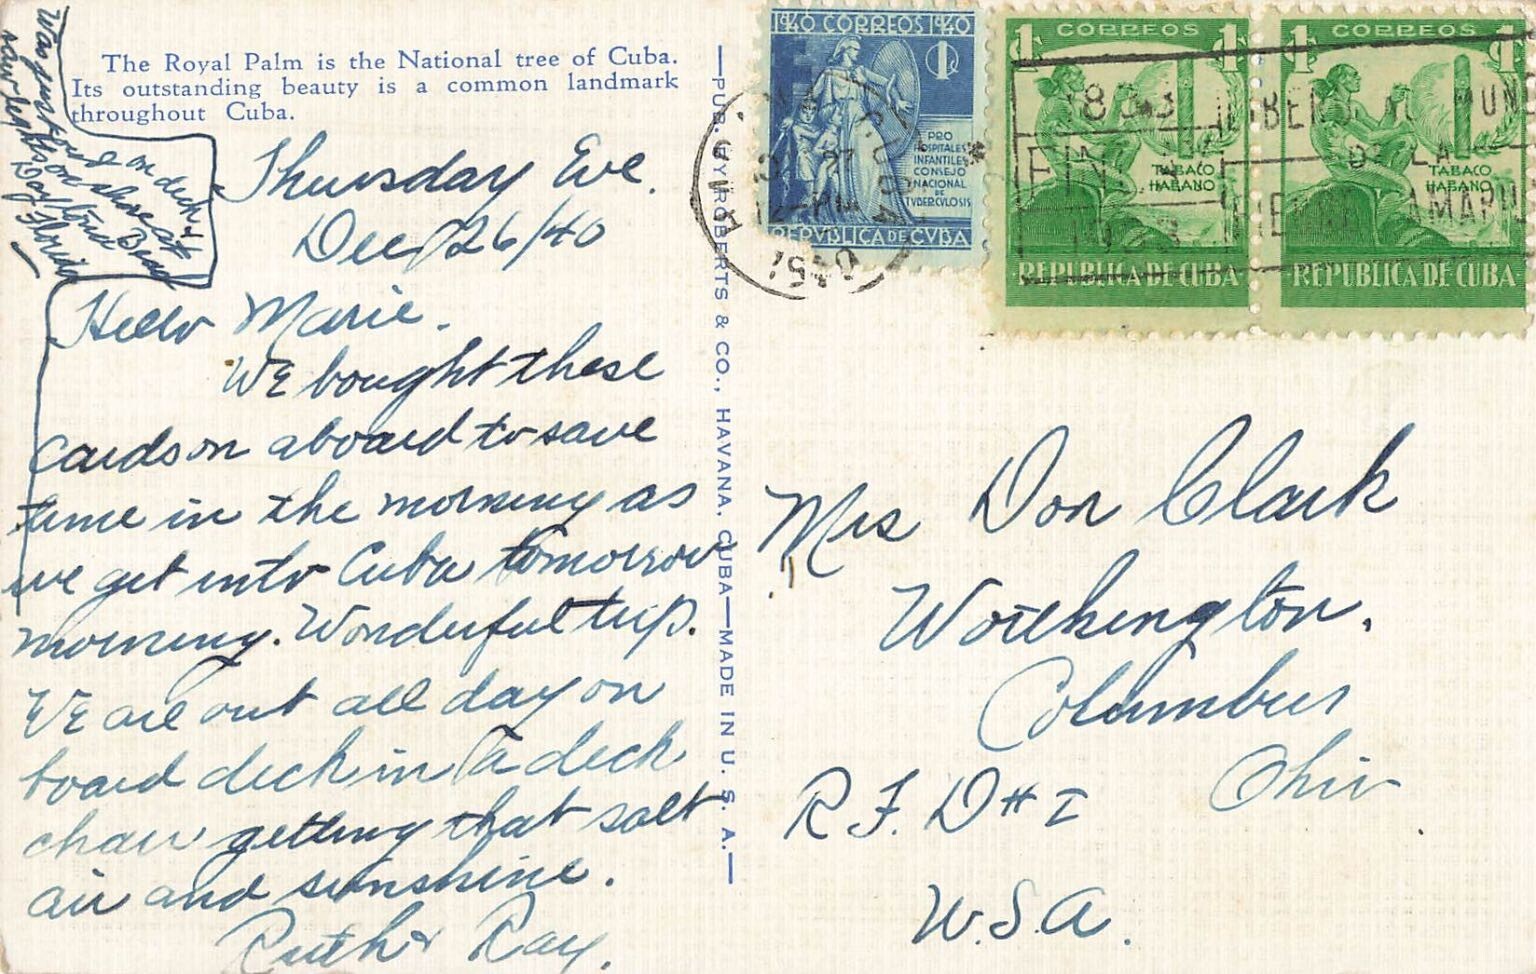 The Royal Palm is the National tree of Cuba.
Its outstanding beauty is a common landmark
throughout Cuba.
Was just out on deck &
saw lights on shore at
Daytona Beach
Florida
Thursday Eve.
Dec 26/40
Hello Marie.
We bought these
cards on aboard to save
time in the morning as
we get into Cuba tomorrow
morning. Wonderful trip.
We are out all day on
board deck in a deck
chair getting that salt
air and sunshine.
Ruth & Ray.
PUB. BY ROBERTS & CO., HAVANA, CUBA—MADE IN U. S. A.
1940 CORREOS 1940
1
PRO
HOSPITALES
INFANTILES
CONSEJO
NACIONAL
DE
TUBERCULOSIS
REPUBLICA DE CUBA
1 CORREOS 1
TABACO
HABANO
REPUBLICA DE CUBA
1 CORREOS 1
TABACO
HABANO
REPUBLICA DE CUBA
27
12-PM
1940
1833
FINLAY
Mrs Don Clark
Worthington.
Columbus
Ohio
R.F.D # 1
U.S.A.